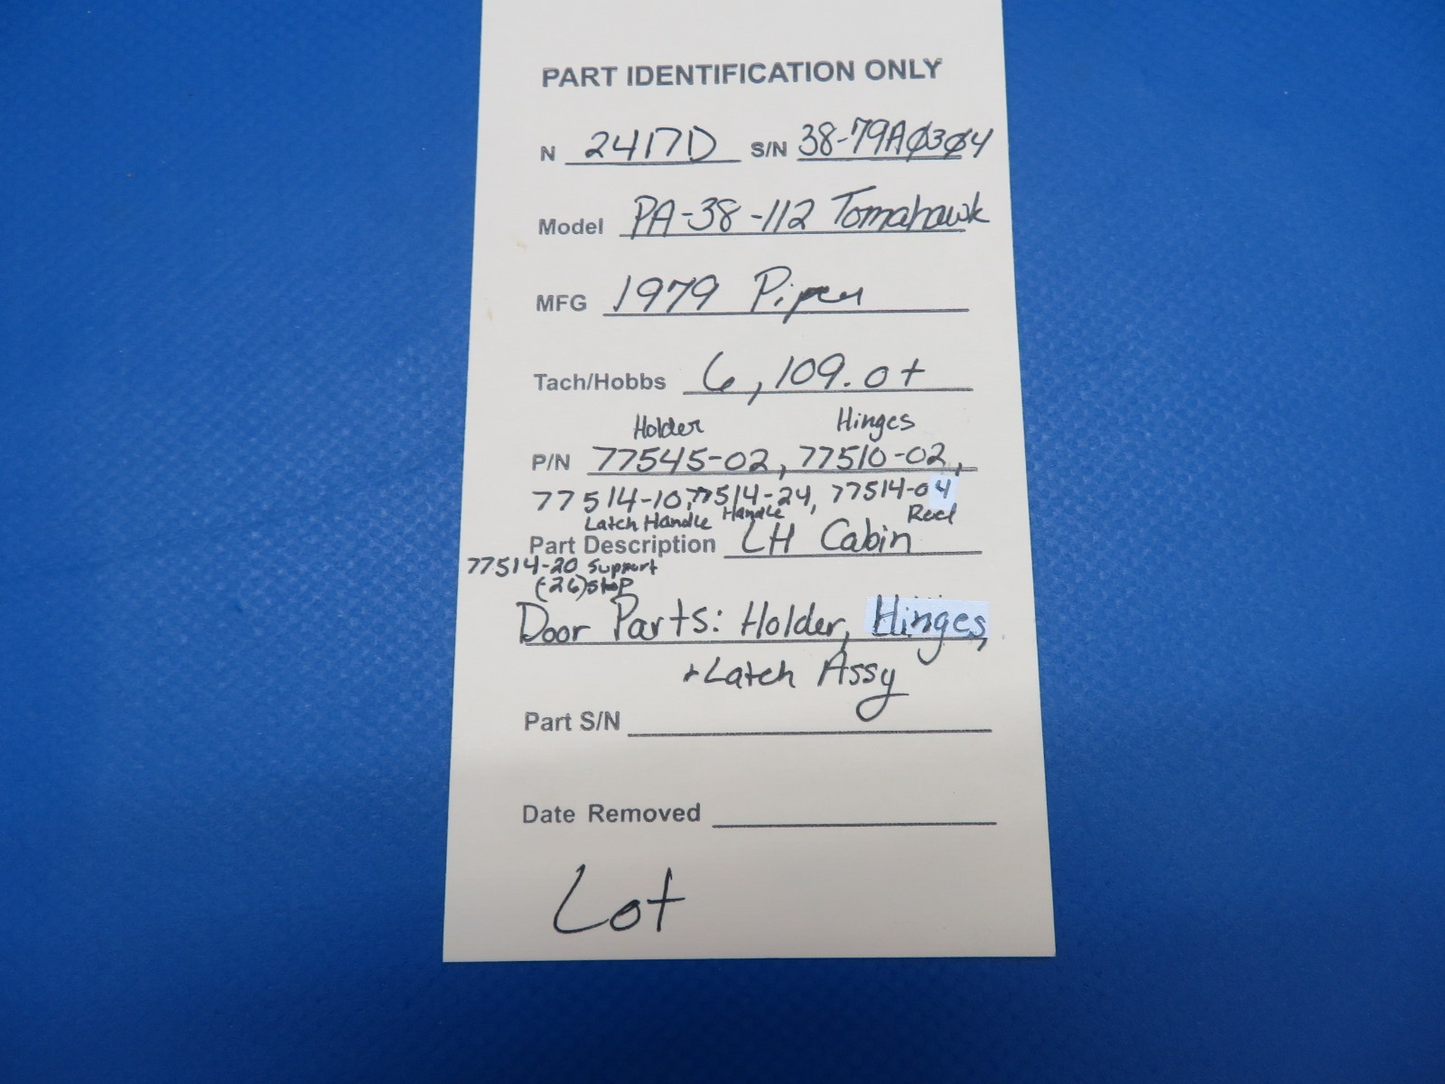 PART IDENTIFICATION ONLY
N 2417D S/N 38-79A0304
Model PA-38-112 Tomahawk
MFG 1979 Piper
Tach/Hobbs 6,109.0+
Holder Hinges
P/N 77545-02, 77510-02,
77514-10, 77514-24, 77514-04
Latch Handle Handle
Part Description LH Cabin
77514-20 Support
(-26) Stop
Door Parts: Holder, Hinges,
+ Latch Assy
Part S/N
Date Removed
Lot